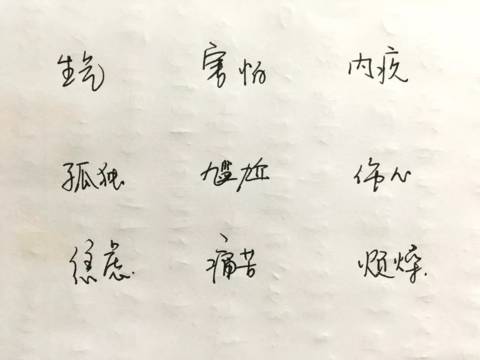 生气 害怕 内疚
孤独 尴尬 伤心
焦虑 痛苦 烦燥